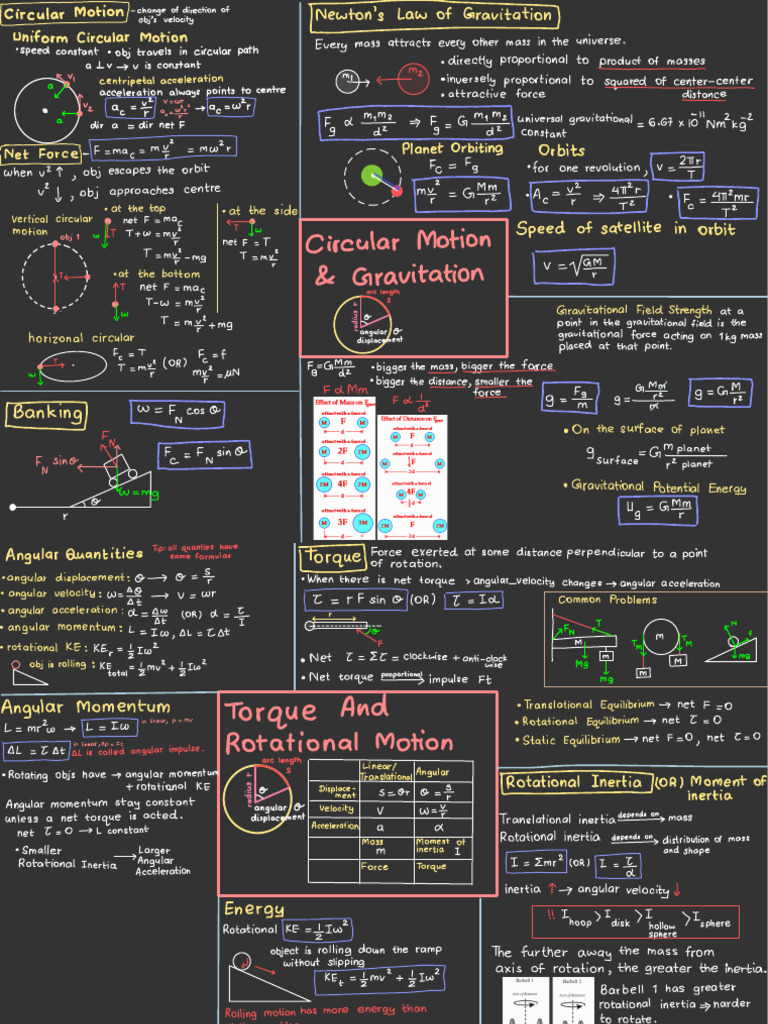 Circular Motion - change of direction of
obj's velocity
Uniform Circular Motion
• speed constant • obj travels in circular path
a ⊥ v → v is constant
centripetal acceleration
acceleration always points to centre
a
a
v₁
v₂
a_c = v²/r
v = ωr
a_c = ω²r²/r
→ a_c = ω²r
dir a = dir net F
Net Force - F = ma_c = m v²/r = mω²r
when v² ↑ , obj escapes the orbit
v² ↓ , obj approaches centre
vertical circular
motion
obj 1
T
• at the top
net F = ma_c
T + ω = m v²/r
T = m v²/r - mg
T
ω
• at the bottom
net F = ma_c
T - ω = m v²/r
T = m v²/r + mg
T
ω
• at the side
T
ω
net F = T
T = m v²/r
horizonal circular
T
ω
F_c = T
T = m v²/r
(OR)
F_c = f
m v²/r = μN
Newton's Law of Gravitation
Every mass attracts every other mass in the universe.
m₁
m₂
• directly proportional to product of masses
• inversely proportional to squared of center-center
distance
• attractive force
F_g ∝ m₁m₂/d² ⇒ F_g = G m₁m₂/d²
universal gravitational
constant
= 6.67 × 10⁻¹¹ Nm²kg⁻²
Planet Orbiting
F_c = F_g
m v²/r = G Mm/r²
Orbits
• for one revolution, v = 2πr/T
• A_c = v²/r ⇒ 4π²r/T²
• F_c = 4π²mr/T²
Speed of satellite in orbit
v = √(GM/r)
Circular Motion
& Gravitation
arc length
S
radius r
θ
angular θ
displacement
F_g = G Mm/d²
• bigger the mass, bigger the force
• bigger the distance, smaller the
force
F ∝ Mm
F ∝ 1/d²
Gravitational Field Strength at a
point in the gravitational field is the
gravitational force acting on 1kg mass
placed at that point.
g = F_g/m
g = G Mm/r² / m
g = G M/r²
• On the surface of planet
g surface = G m planet / r² planet
• Gravitational Potential Energy
U_g = G Mm/r
Banking
ω = F_N cos θ
F_c = F_N sin θ
F_N
F_N sin θ
ω = mg
θ
r
Angular Quantities
Tip: all quanties have
same formulas
• angular displacement: θ → θ = s/r
• angular velocity: ω = Δθ/Δt → v = ωr
• angular acceleration: α = Δω/Δt (OR) α = τ/I
• angular momentum: L = Iω, ΔL = τΔt
• rotational KE: KE_r = ½Iω²
obj is rolling: KE total = ½mv² + ½Iω²
Torque Force exerted at some distance perpendicular to a point
of rotation.
• When there is net torque → angular_velocity changes → angular acceleration
τ = r F sin θ (OR) τ = Iα
r
F
• Net τ = Στ = clockwise + anti-clock
wise
• Net torque proportional → impulse Ft
Common Problems
F_N
T
M
Mg
m
Mg
M
T_M
T_M
m
M
N
f
mg
• Translational Equilibrium → net F = 0
• Rotational Equilibrium → net τ = 0
• Static Equilibrium → net F = 0, net τ = 0
Angular Momentum
L = mr²ω → L = Iω in linear, p = mv
ΔL = τ Δt in linear, Δp = Ft
ΔL is called angular impulse.
• Rotating objs have → angular momentum
+ rotational KE
Angular momentum stay constant
unless a net torque is acted.
net τ = 0 → L constant
• Smaller
Rotational Inertia
→ Larger
Angular
Acceleration
Torque And
Rotational Motion
arc length
S
radius r
θ
angular θ
displacement
Linear/
Translational
Angular
Displace-
ment
s = θr
θ = s/r
Velocity
V
ω = v/r
Acceleration
a
α
Mass
m
Moment of
inertia I
Force
Torque
Energy
Rotational KE = ½Iω²
object is rolling down the ramp
without slipping
KE_t = ½mv² + ½Iω²
Rolling motion has more energy than
Rotational Inertia (OR) Moment of
inertia
Translational inertia depends on → mass
Rotational inertia depends on → distribution of mass
and shape
I = Σmr² (OR) I = τ/α
inertia ↑ → angular velocity ↓
!! I hoop > I disk > I hollow sphere > I sphere
The further away the mass from
axis of rotation, the greater the inertia.
Barbell 1
Barbell 2
Axis of Rotation
Axis of Rotation
Barbell 1 has greater
rotational inertia ⇒ harder
to rotate.